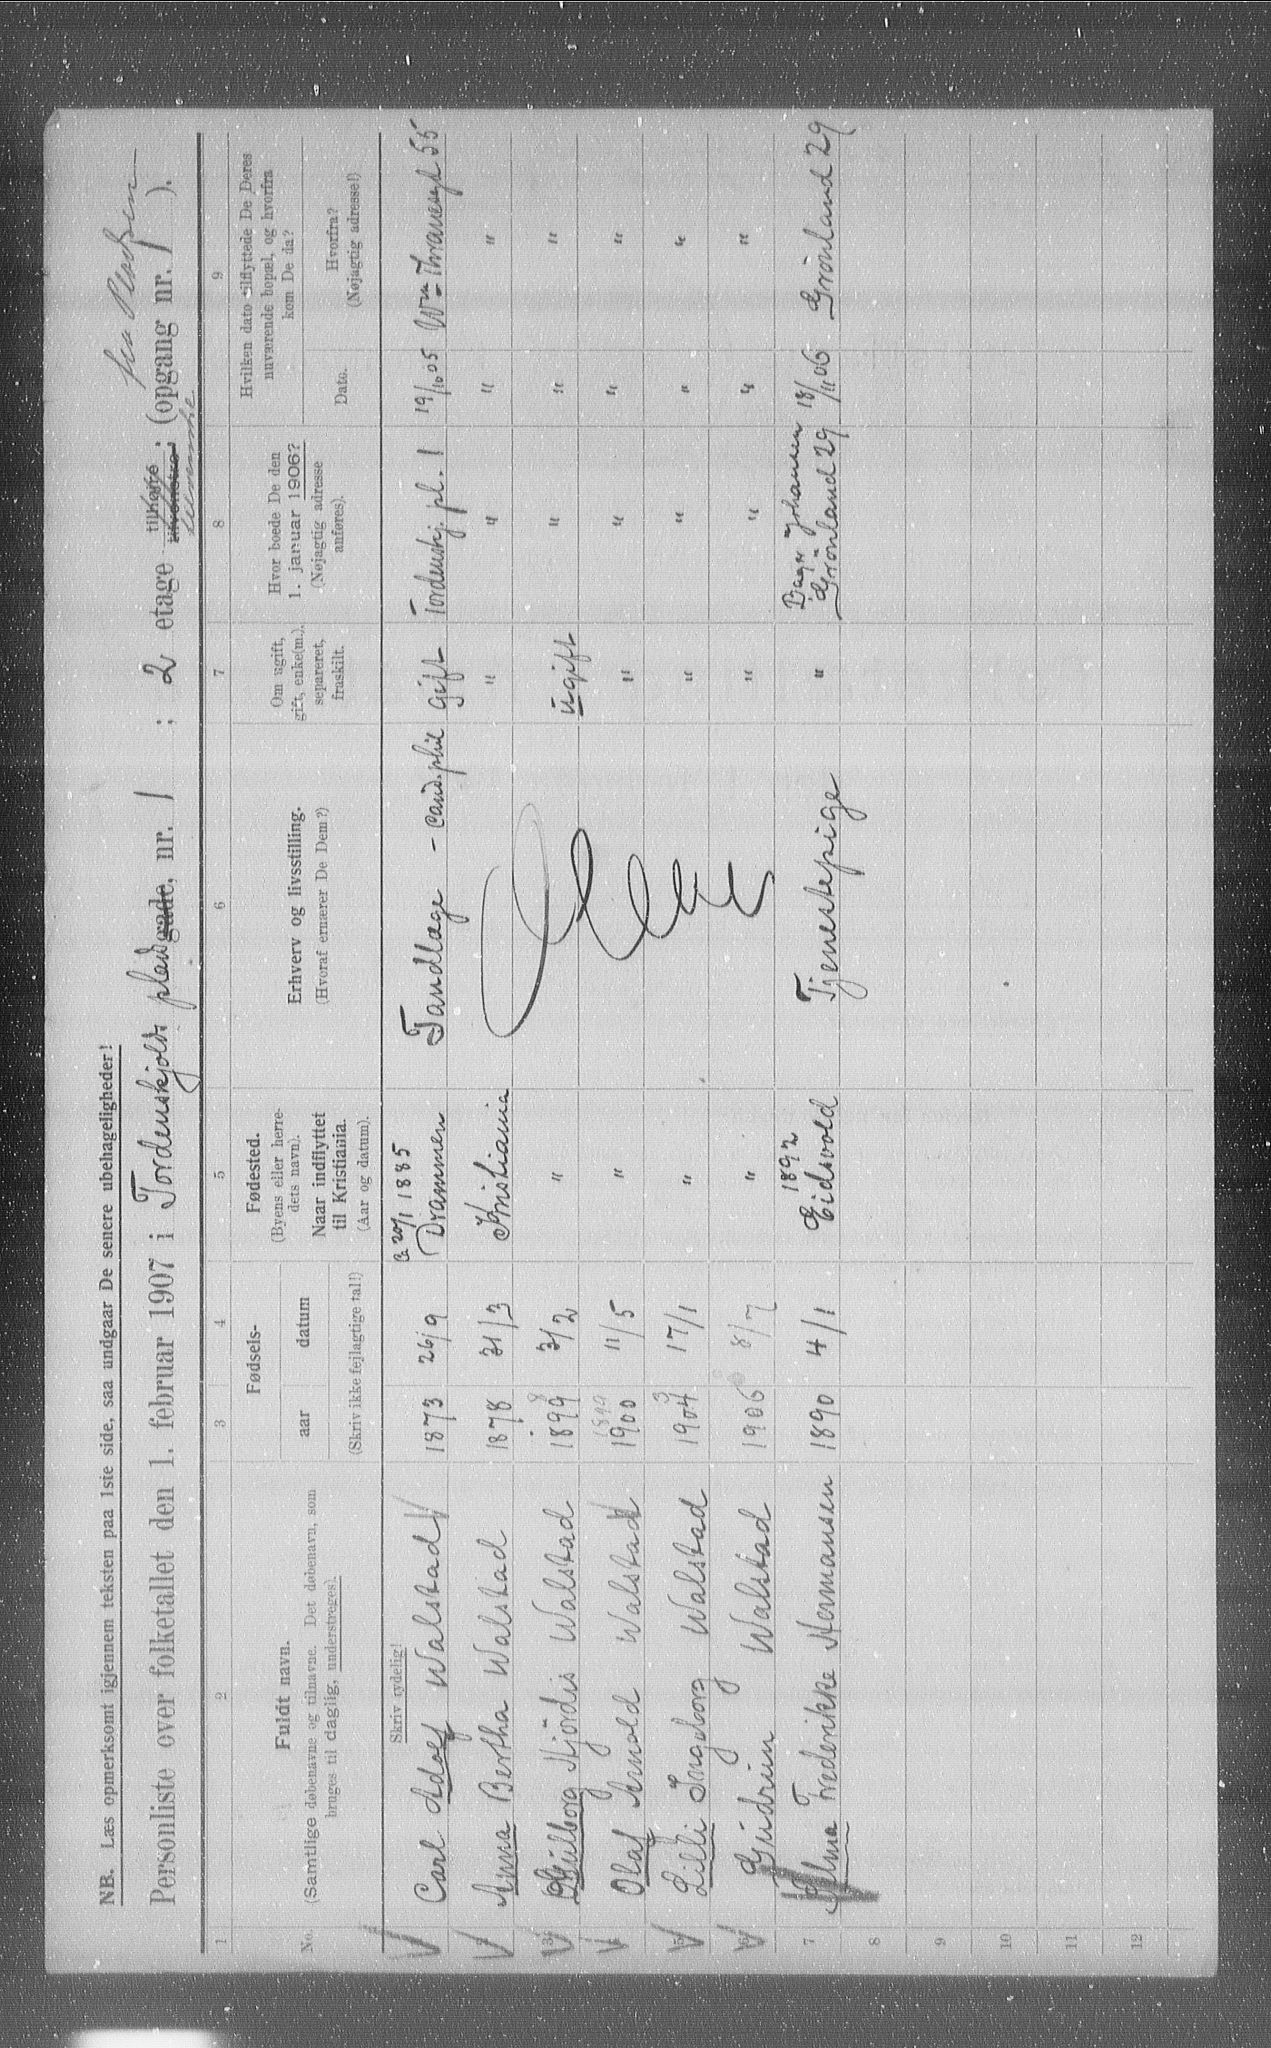 NB. Læs opmerksomt igjennem teksten paa 1ste side, saa undgaar De senere ubehageligheder!
Personliste over folketallet den 1. februar 1907 i Tordenskjolds plads gade, nr. 1 ; 2 etage tilhøire tilvenstre; (opgang nr. 1 ).
1 2 3 4 5 6 7 8 9
No.
Fuldt navn.
(Samtlige døbenavne og tilnavne. Det døbenavn, som
bruges til daglig, understreges).
Fødsels-
aar datum
(Skriv ikke fejlagtige tal!)
Fødested.
(Byens eller herre-
dets navn).
Naar indflyttet
til Kristiania.
(Aar og datum).
Erhverv og livsstilling.
(Hvoraf ernærer De Dem?)
Om ugift,
gift, enke(m.),
separeret,
fraskilt.
Hvor boede De den
1. januar 1906?
(Nøjagtig adresse
anføres).
Hvilken dato tilflyttede De Deres
nuværende bopæl, og hvorfra
kom De da?
Dato.
Hvorfra?
(Nøjagtig adresse!)
Skriv tydelig!
Carl Adolf Walstad 1873 26/9 20/1 1885 Drammen Tandlæge - cand. phil gift Tordenskj. pl. 1 19/10 05 Wm Thranesgd 55
2 Anna Bertha Walstad 1878 31/3 Kristiania " " " "
3 Gulborg Hjördis Walstad 1899 3/2 " ugift " " "
Olaf Arnold Walstad 1899 1900 11/5 " " " " "
5 Lilli Ingeborg Walstad 1904 3 17/1 " " " " "
6 Gudrun Walstad 1906 8/7 " " " " "
7 Alma Frederikke Hermansen 1890 4/1 1892 Eidsvold Tjenestepige " Bager Johansen Grönland 29 18/11 06 Grönland 29
8
9
10
11
12